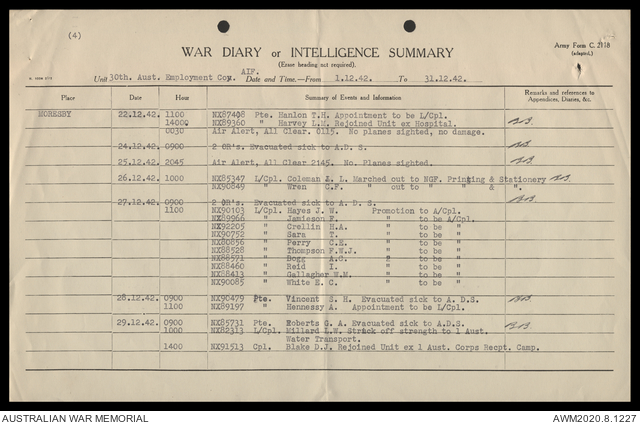 (4)
Army Form C. 2118
(adapted.)
WAR DIARY or INTELLIGENCE SUMMARY
(Erase heading not required).
Unit 30th. Aust. Employment Coy. AIF. Date and Time.—From 1.12.42. To 31.12.42.
Place Date Hour Summary of Events and Information Remarks and references to Appendices, Diaries, &c.
MORESBY 22.12.42. 1100 NX87408 Pte. Hanlon T.H. Appointment to be L/Cpl.
14000 NX89360 " Harvey L.M. Rejoined Unit ex Hospital.
0030 Air Alert, All Clear. 0115. No planes sighted, no damage.
24.12.42. 0900 2 OR's. Evacuated sick to A.D.S.
25.12.42. 2045 Air Alert, All Clear 2145. No. Planes sighted.
26.12.42. 1000 NX85347 L/Cpl. Coleman L. Marched out to NGF. Printing & Stationery
NX90849 " Wren C.F. " out to " & ".
27.12.42. 0900 2 OR's. Evacuated sick to A. D. S.
1100 NX90103 L/Cpl. Hayes J. W. Promotion to A/Cpl.
NX89966 " Jamieson F. " to be A/Cpl.
NX92205 " Crellin H.A. " to be "
NX90752 " Sara T. " to be "
NX80856 " Perry C.E. " to be "
NX88528 " Thompson F.W.J. " to be "
NX88571 " Bogg A.G. " to be "
NX88460 " Reid I. " to be "
NX88413 " Gallagher W.M. " to be "
NX90085 " White E. C. " to be "
28.12.42. 0900 NX90479 Pte. Vincent S. H. Evacuated sick to A. D.S.
1100 NX89197 " Hennessy A. Appointment to be L/Cpl.
29.12.42. 0900 NX85731 Pte. Roberts G. A. Evacuated sick to A.D.S.
1000 NX82313 L/Cpl. Millard L.W. Struck off strength to 1 Aust.
Water Transport.
1400 NX91513 Cpl. Blake D.J. Rejoined Unit ex 1 Aust. Corps Recpt. Camp.
AUSTRALIAN WAR MEMORIAL
AWM2020.8.1227